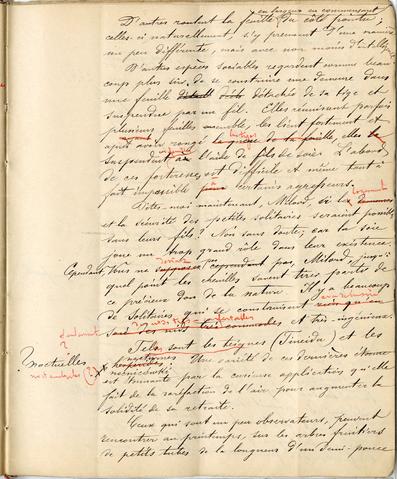 en forgeant en commençant
D'autres roulent la feuille du côté pointu;
celles-ci naturellement s'y prennent d'une manière
un peu différente, mais avec non moins d'intelligence.
D'autres espèces sociables regardent comme beau
coup plus sûr de se construire une demeure dans
une feuille détachée de sa tige et
suspendue par un fil. Elles réunissent parfois
plusieurs feuilles ensemble, les lient fortement et
après avoir rongé la de la feuille, elles
suspendent à l'aide de fils de soie. L'abord
de ces forteresses est difficile et même tout à
fait impossible certains agresseurs.
logement
Dites-moi maintenant, Milord, si les
et la sécurité des petites solitaires seraient possibles
sans leurs fils? Non sans doute; car la soie
joue un trop grand rôle dans leur existence.
Cependant vous ne cependant pas, Milord, jusqu'à
quel point les chenilles savent tirer partie de
ce précieux don de la nature. Il y a beaucoup
de solitaires qui se construisent
sont des nids très commodes et très-ingénieux.
Tels sont les teignes (Tineida) et les
Noctuelles
nocturnes
Une variété de ces dernières étonne
est étonnante par la curieuse application qu'elle
fait de la raréfaction de l'air pour augmenter la
solidité de sa retraite.
Ceux qui sont un peu observateurs, peuvent
rencontrer au printemps, sur les arbres fruitiers
de petits tubes de la longueur d'un demi-pouce